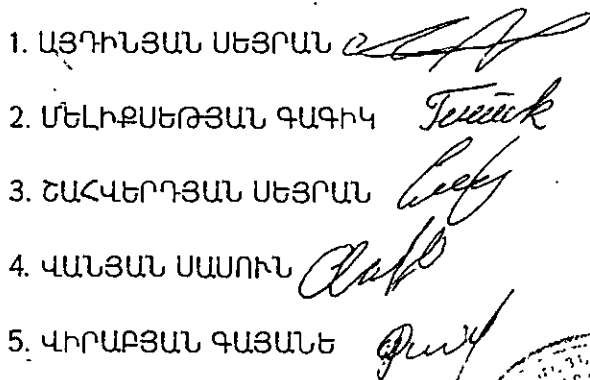 1. ԱՅԴԻՆՅԱՆ ՍԵՅՐԱՆ
2. ՄԵԼԻՔՍԵԹՅԱՆ ԳԱԳԻԿ
3. ՇԱՀՎԵՐԴՅԱՆ ՍԵՅՐԱՆ
4. ՎԱՆՅԱՆ ՍԱՍՈՒՆ
5. ՎԻՐԱԲՅԱՆ ԳԱՅԱՆԵ